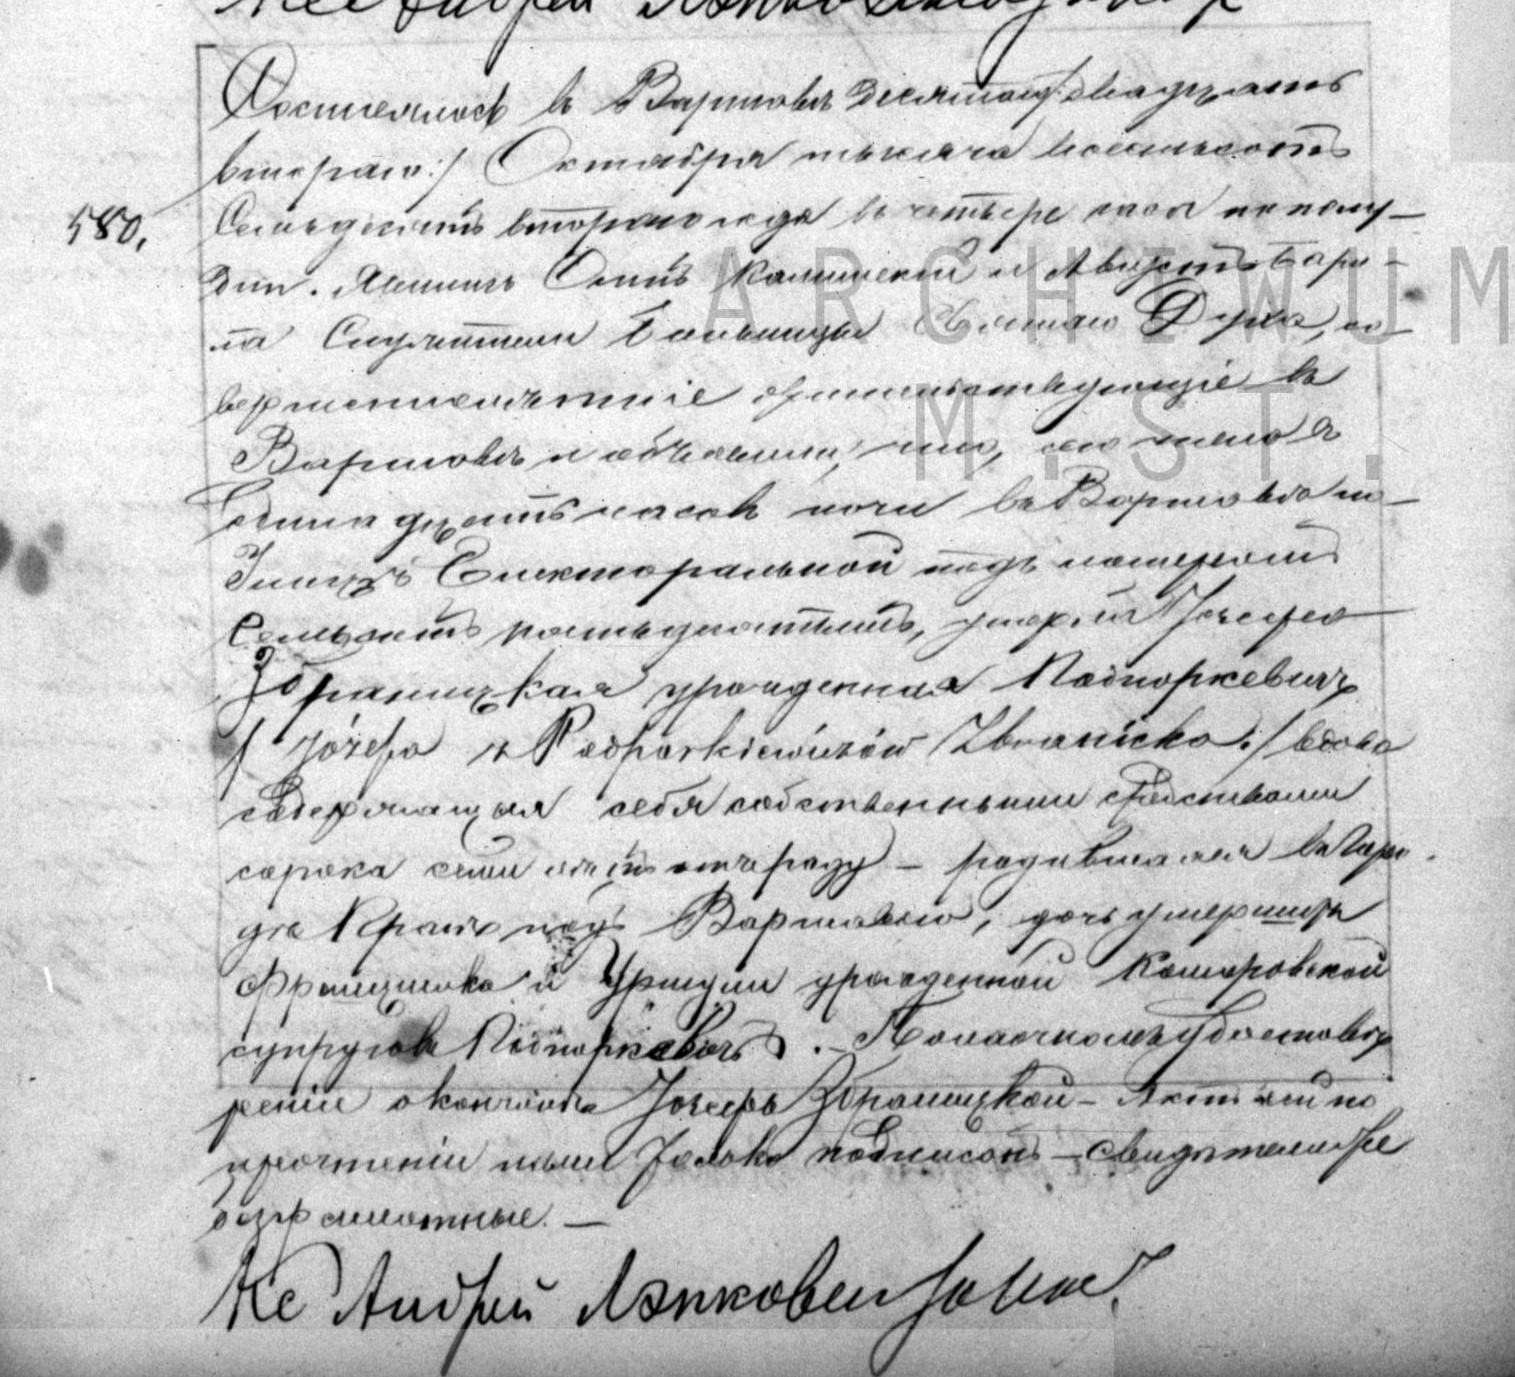 580.
Состоялось въ Варшавѣ десятаго /: двадцать
втораго :/ Октября тысяча восемьсотъ
семьдесятъ втораго года въ четыре часа по полу-
дни. Явились Осипъ Калинскій и Августъ
Служители Больницы Святаго Духа, со-
вершеннолѣтніе жительствующіе въ
Варшавѣ и объявили, что, сего числа въ
одинадцать часовъ ночи въ Варшавѣ по
Улицѣ Електоральной подъ номеромъ
семьсотъ пятьдесятымъ, умерла Іозефа
Збраницкая урожденная Подпоркевичъ
/: Józefa z Podporkiewiczów Zbranicka :/ вдова
содержащая себя собственными средствами
сорока семи лѣтъ отъ роду – родившаяся въ
подъ Варшавою, дочь умершихъ
Францишка и Уршули урожденной Комаровской
супруговъ Подпоркевичъ. – По настоятельномъ удостовѣ
реніи о кончинѣ Іозефы Збраницкой – Актъ сей по
прочтеніи нами только подписанъ – свидѣтели же
безграмотные. –
Кс Андрей
ARCHIWUM
M. ST.